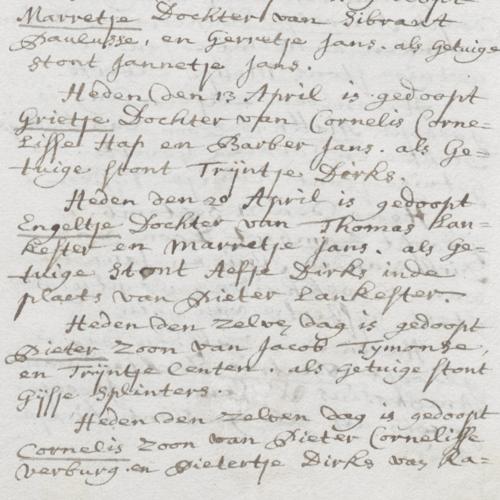 Marretje Dochter van Sibrant
Paulusse, en Gerretje Jans. als getuige
stont Jannetje Jans.
Heden den 13 April is gedoopt
Grietje Dochter van Cornelis Corne-
lisse Hap en Barber Jans. als Ge-
tuige stont Trijntje Dirks.
Heden den 20 April is gedoopt
Engeltje Dochter van Thomas Lan-
kester en Marretje Jans. als ge-
tuige stont Aefje Dirks inde
plaets van Pieter Lankester.
Heden den zelven dag is gedoopt
Pieter Zoon van Jacob Tymonse,
en Trijntje Centen. als getuige stont
Gijsje Splinters.
Heden den zelven dag is gedoopt
Cornelis Zoon van Pieter Cornelisse
verburg en Pietertje Dirks van Ka-